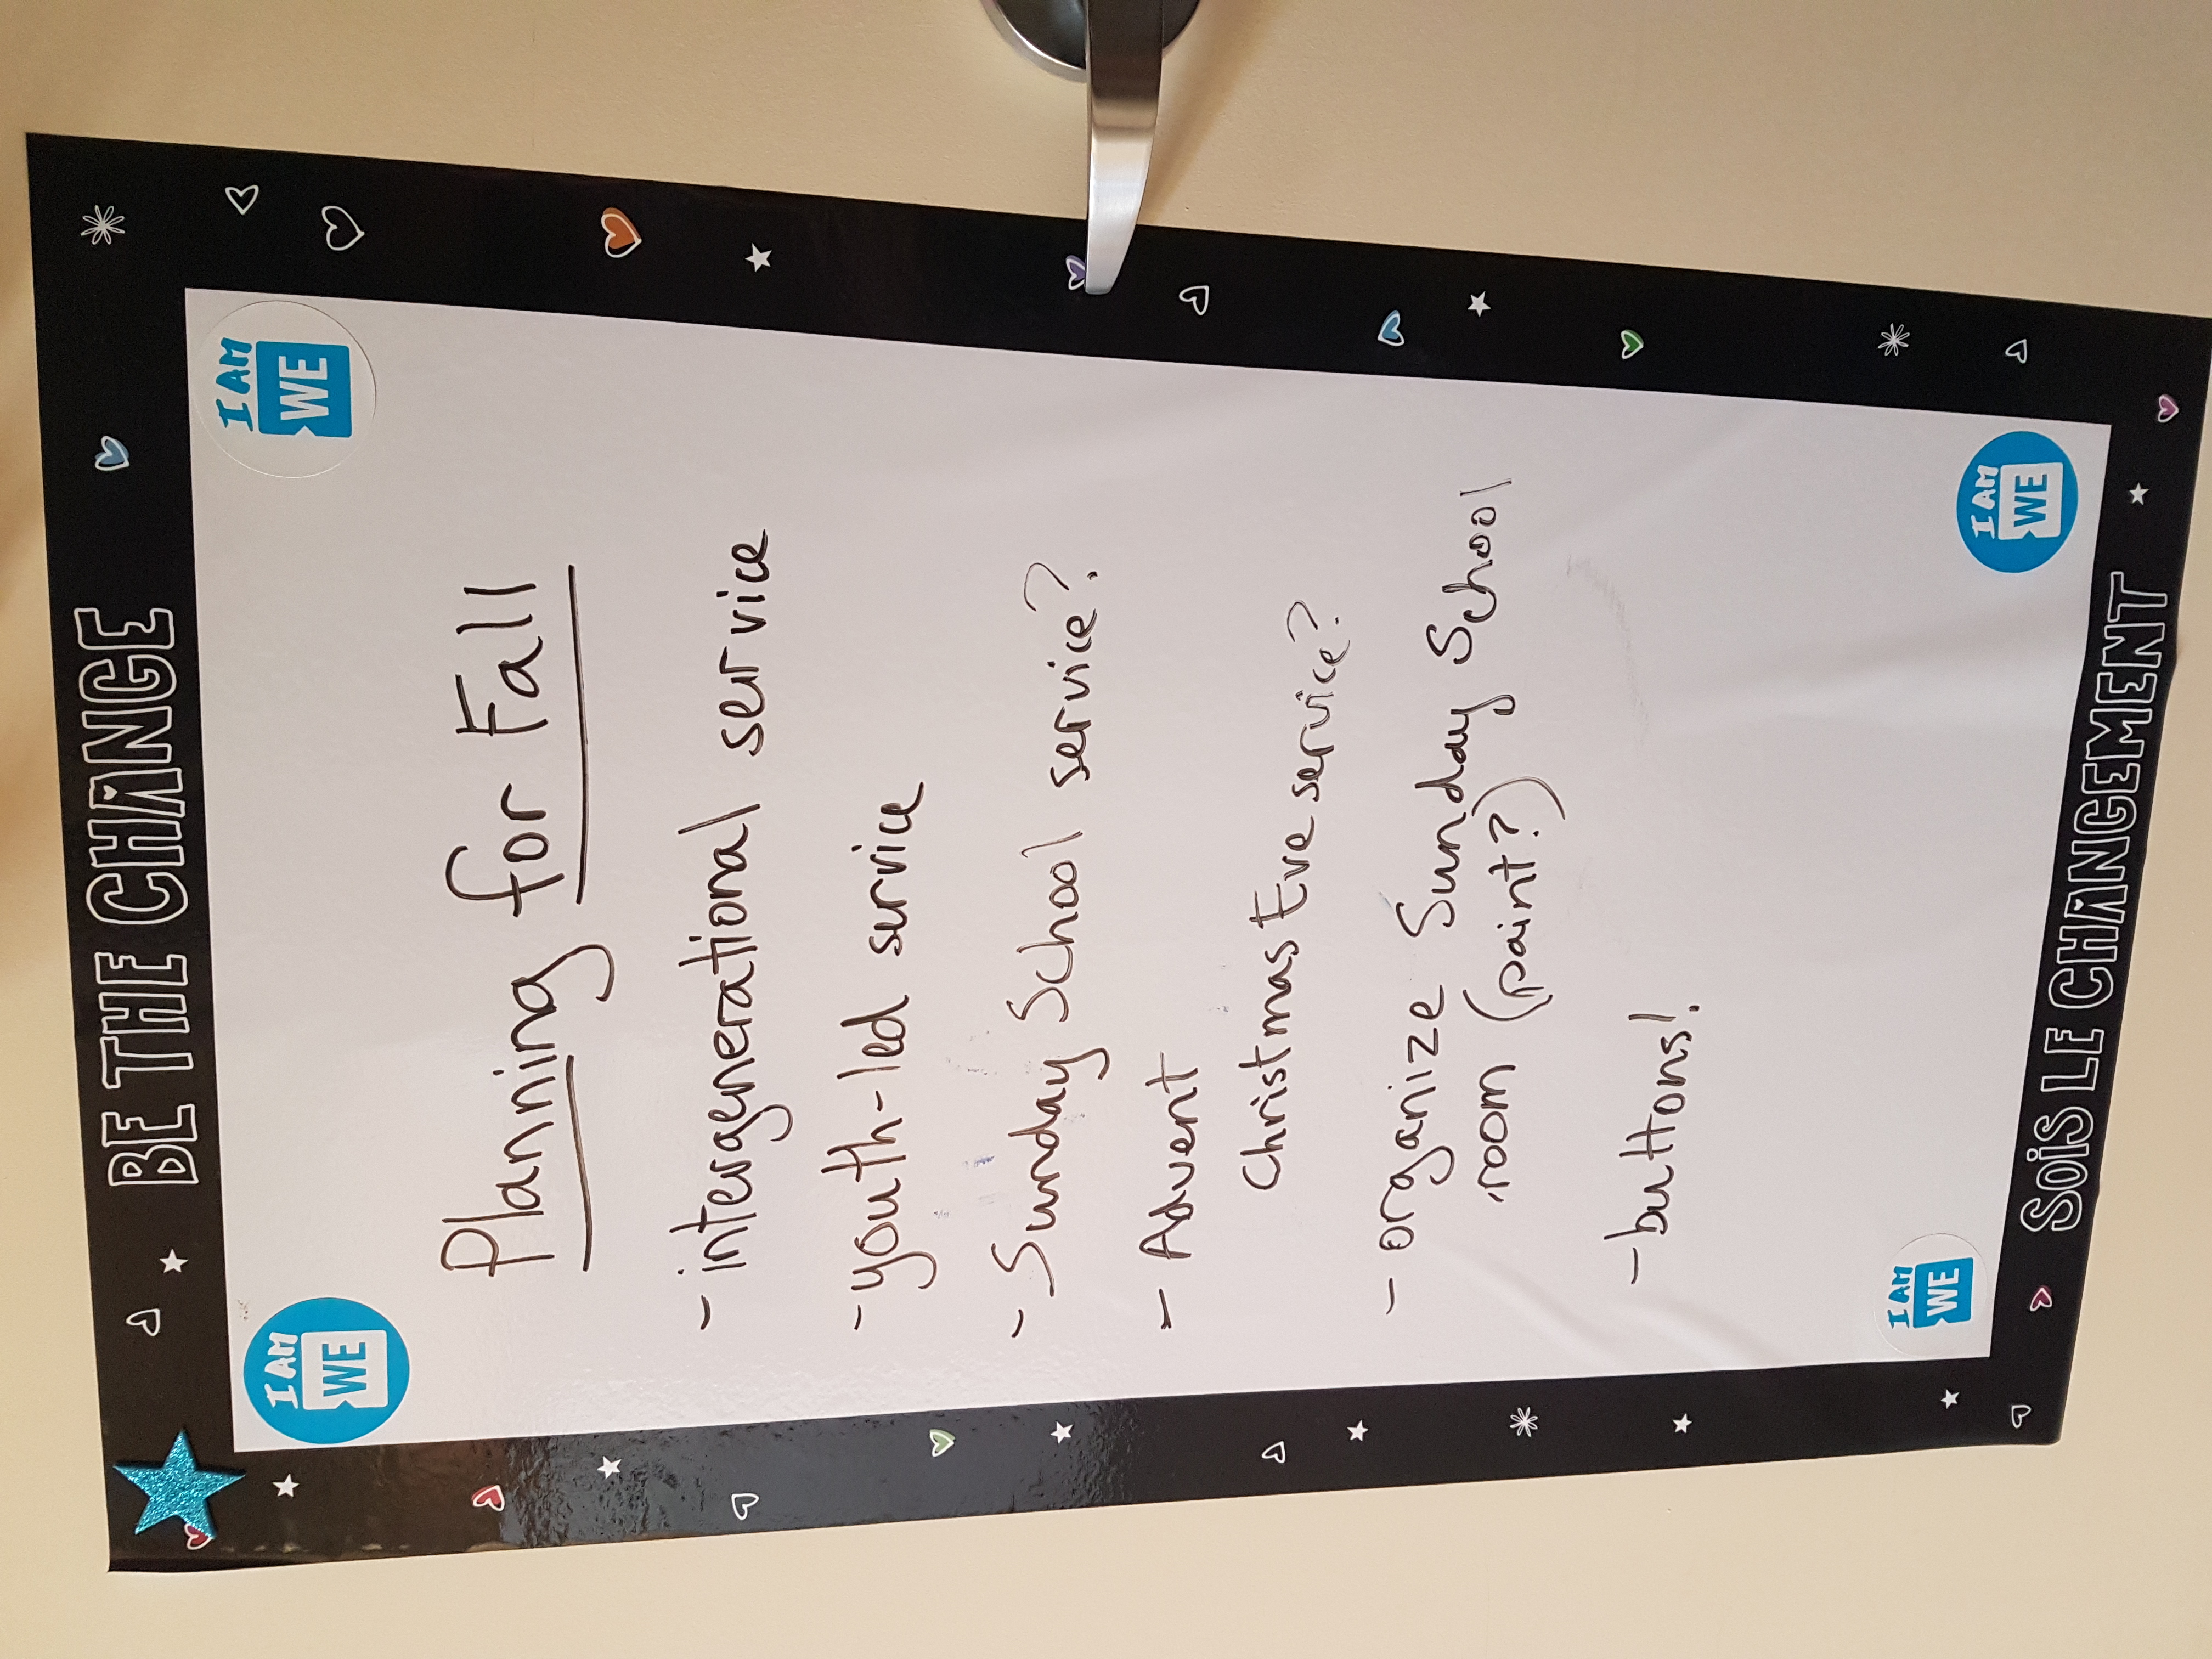 BE THE CHANGE
I AM
WE
I AM
WE
Planning for Fall
- intergenerational service
- youth-led service
- Sunday School service?
- Advent
Christmas Eve service?
- organize Sunday School
room (paint?)
- buttons!
I AM
WE
I AM
WE
SOIS LE CHANGEMENT